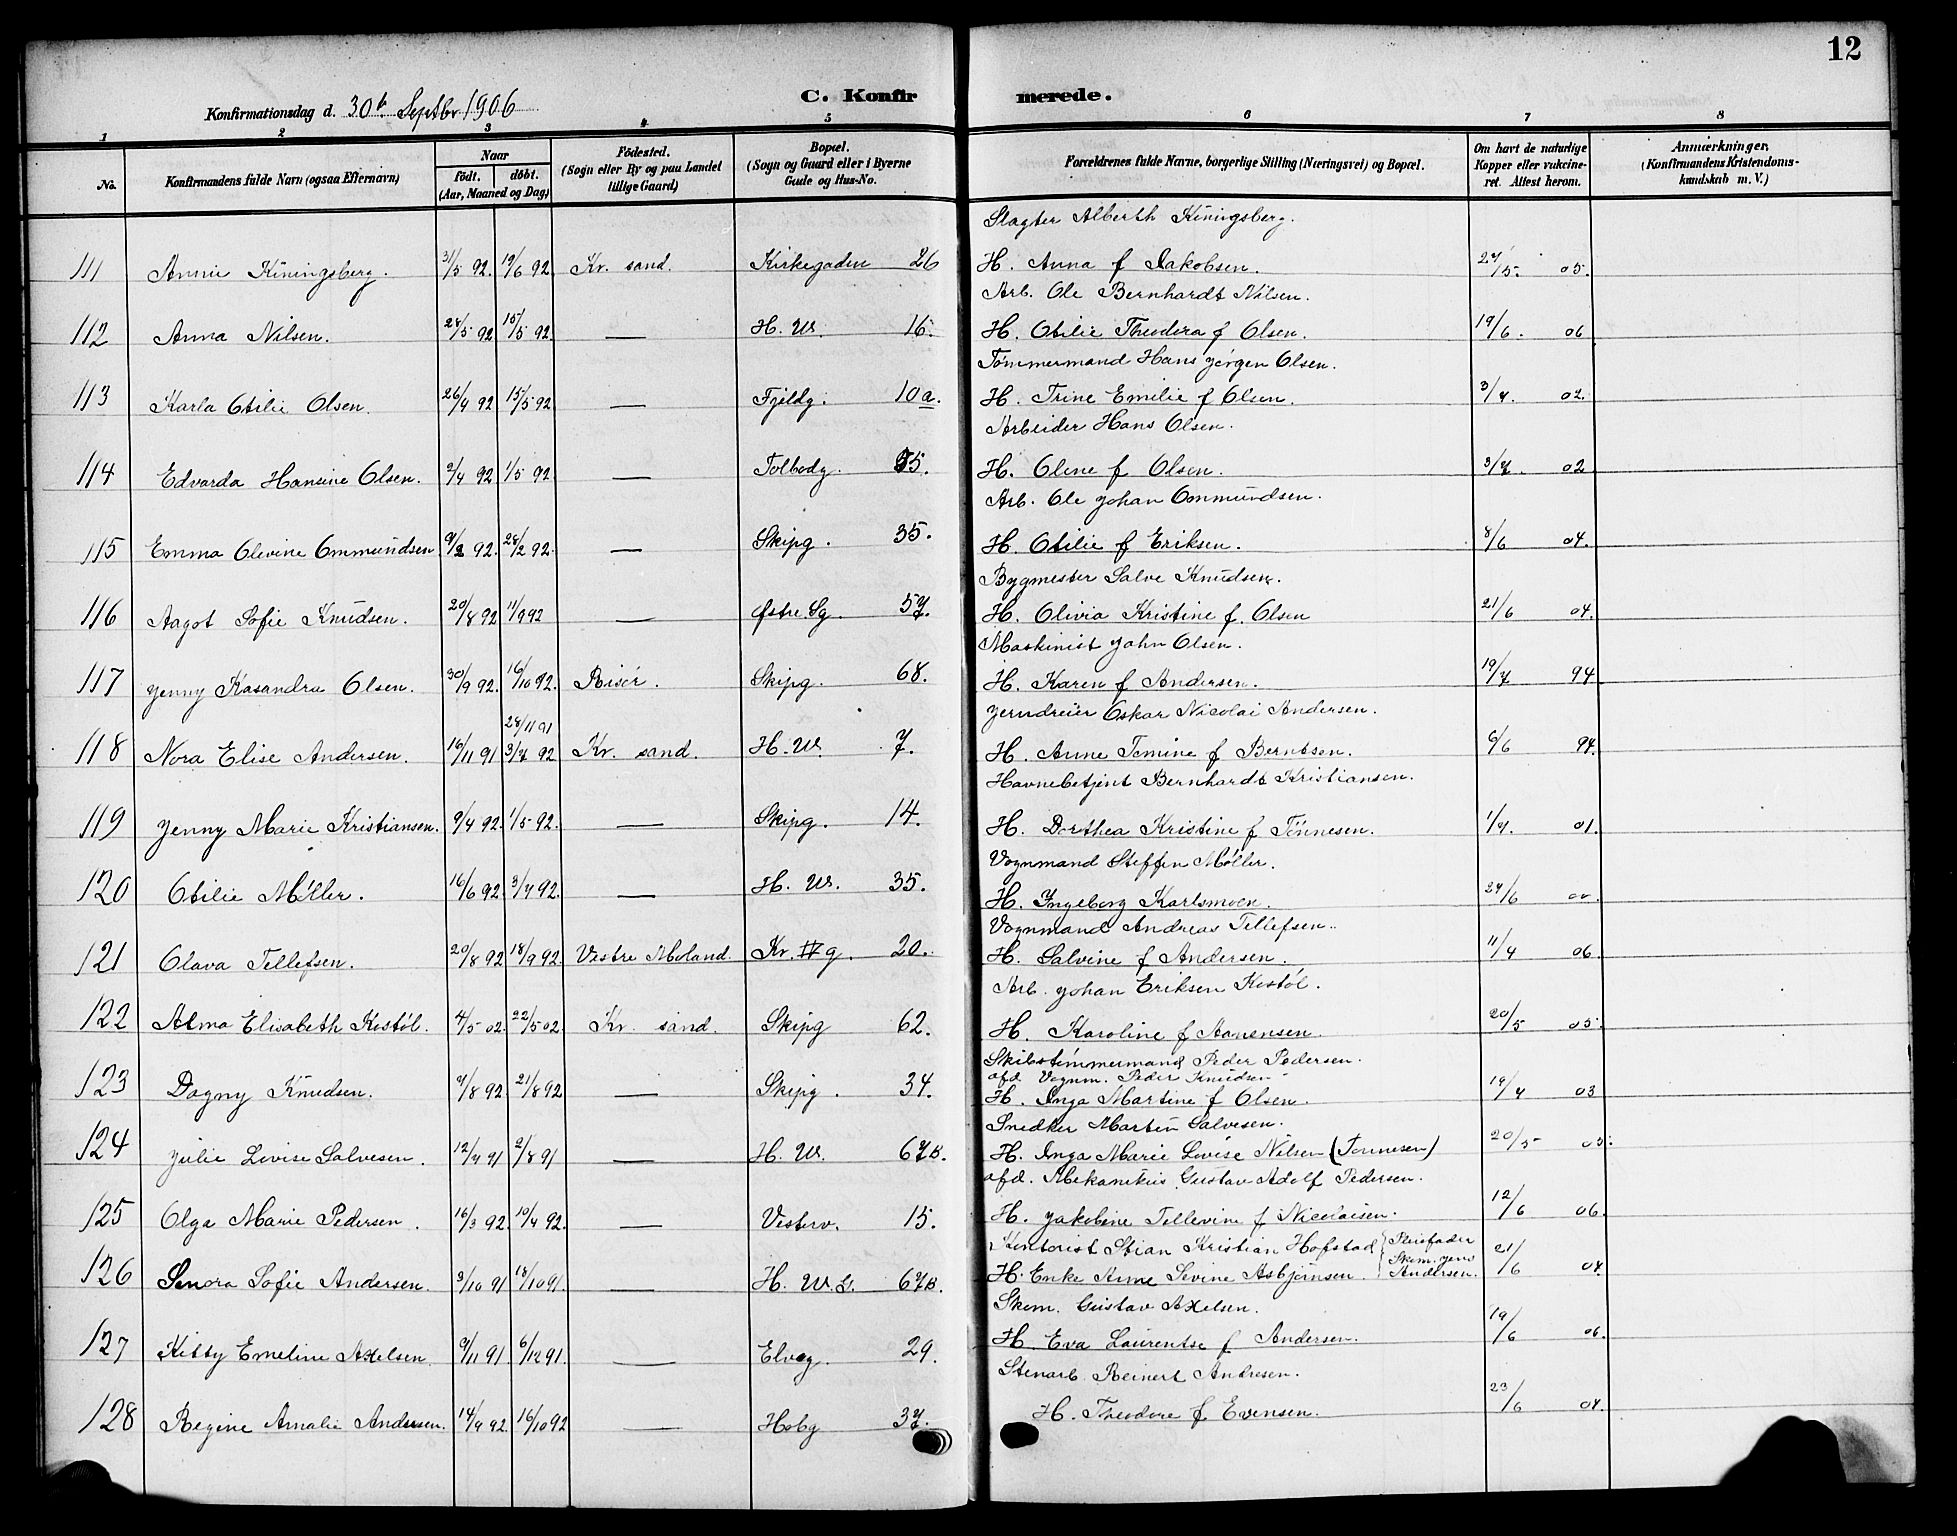 12
C. Konfirmerede.
Konfirmationsdag d. 30te Septbr 1906
1 2 3 4 5 6 7 8
No. Konfirmandens fulde Navn (ogsaa Efternavn) Naar født. døbt. (Aar, Maaned og Dag) Fødested. (Sogn eller By og paa Landet tillige Gaard) Bopæl. (Sogn og Gaard eller i Byerne Gade og Hus-No. Forældrenes fulde Navne, borgerlige Stilling (Næringsvei) og Bopæl. Om havt de naturlige Kopper eller vakcineret. Attest herom. Anmærkninger, (Konfirmandens Kristendomskundskab m. V.)
Slagter Alberth Kiningsberg.
111 Annie Kiningsberg. 31/5 92. 19/6 92. Kr. sand. Kirkegaden 26 H. Anna f Jakobsen. 27/5. 05.
Arb. Ole Bernhardt Nilsen.
112 Anna Nilsen. 28/5 92 15/5 92. — H. W. 16. H. Otilie Theodora f Olsen. 19/6. 06
Tömmermand Hans Jörgen Olsen.
113 Karla Otilie Olsen. 26/4 92 15/5 92. — Fjeldg. 10a. H. Trine Emilie f Olsen. 3/7. 02.
Arbeider Hans Olsen.
114 Edvarda Hansine Olsen. 2/4 92 1/5 92 — Tolbodg. 55. H. Oline f Olsen. 3/7. 02
Arb. Ole Johan Ommundsen.
115 Emma Olevine Ommundsen 9/2 92. 28/2 92. — Skipg. 35. H. Otilie f Eriksen. 8/6 04.
Bygmester Salve Knudsen.
116 Aagot Sofie Knudsen. 20/8 92 11/9 92 — Østre Sg. 57. H. Olivia Kristine f. Olsen 21/6 04.
Maskinist John Olsen.
117 Jenny Kasandra Olsen. 30/9 92. 16/10 92. Risör. Skipg. 68. H. Karen f Andersen. 19/7 94
Jerndreier Oskar Nicolai Andersen.
28/11 91
118 Nora Elise Andersen. 16/11 91 3/7 92 Kr. sand. H. W. 7. H. Anne Tomine f Berntsen. 6/6 94.
Havnebetjent Bernhardt Kristiansen.
119 Jenny Marie Kristiansen. 9/4 92. 1/5 92. — Skipg. 14. H. Dorthea Kristine f Tönnesen. 1/7. 01.
Vognmand Steffen Möller.
120 Otilie Möller. 16/6 92. 3/7 92. — H. W. 35. H. Ingeborg Karlsmoen. 27/6 00.
Vognmand Andreas Tellefsen.
121 Olava Tellefsen. 20/8 92 18/9 92. Vestre Moland. Kr. IV g. 20. H. Salvine f Andersen. 11/4 06.
Arb. Johan Eriksen Kostöl.
122 Alma Elisabeth Kostöl. 4/5 02. 22/5 02. Kr. sand. Skipg 62. H. Karoline f Aanensen. 20/5 05.
Skibstömmermand Peder Pedersen.
afd. Vognm. Peder Knudsen
123 Dagny Knudsen. 9/8 92. 21/8 92 — Skipg. 34. H. Inga Martine f Olsen. 19/4 03
Snedker Martin Salvesen.
124 Julie Lovise Salvesen. 12/7 91 2/8 91 — H. W. 67B. H. Inga Marie Lovise Nilsen (Tönnesen) 20/5 05.
afd. Mekanikus Gustav Adolf Pedersen.
125 Olga Marie Pedersen. 16/3 92. 10/4 92. — Vesterv. 15. H. Jakobine Tellevine f Nicolaisen. 12/6 06.
Kontorist Stian Kristian Hofstad { Pleiefader Skom. Jens Andersen.
126 Senora Sofie Andersen. 3/10 91 18/10 91. — H. W. G. 67B. H. Enke Anne Sevine Asbjörnsen. 21/6 04.
Skom. Gustav Axelsen.
127 Kitty Emeline Axelsen. 9/11 91 6/12 91. — Elveg. 29. H. Eva Laurentse f Andersen. 19/6 06.
Stenarb. Reinert Andresen.
128 Regine Amalie Andersen. 14/9 92. 16/10 92 — Hobg 37. H. Theodore f Evensen. 23/6 04.